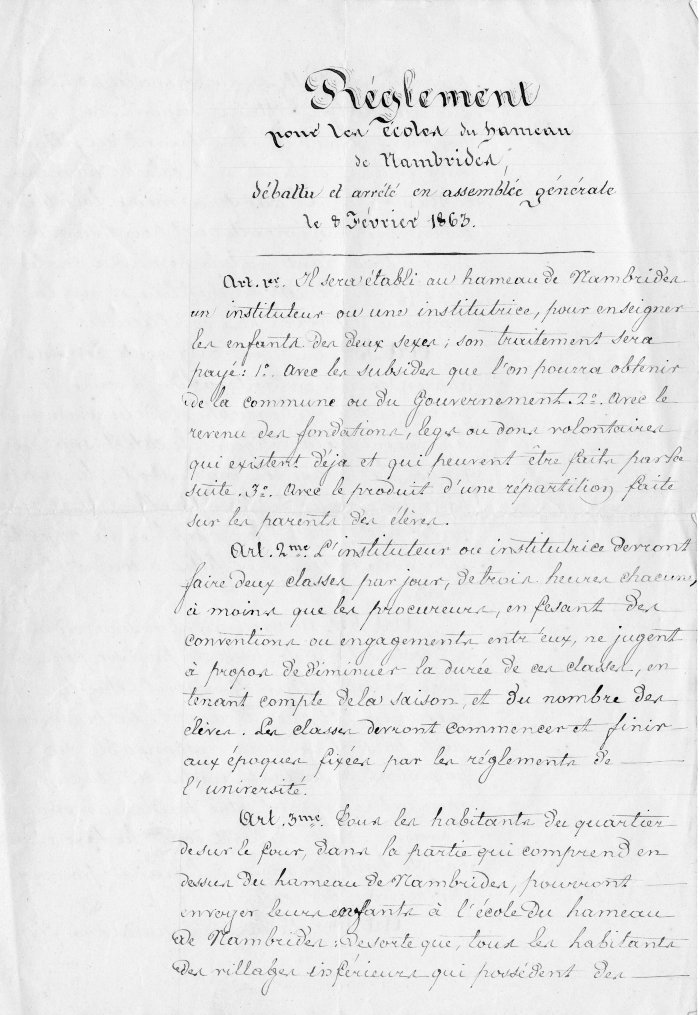 Réglement
pour les écoles du hameau
de Nambrides,
débattu et arrêté en assemblée générale
le 8 Février 1863.
Art. 1er. Il sera établi au hameau de Nambrides
un instituteur ou une institutrice, pour enseigner
les enfants des deux sexes ; son traitement sera
payé : 1o. Avec les subsides que l'on pourra obtenir
de la commune ou du Gouvernement. 2o. Avec le
revenu des fondations, legs ou dons volontaires
qui existent déja et qui peuvent être faits par la
suite. 3o. Avec le produit d'une répartition faite
sur les parents des élèves.
Art. 2me. L'instituteur ou institutrice devront
faire deux classes par jour, de trois heures chacune,
à moins que les procureurs, en fesant des
conventions ou engagements entr'eux, ne jugent
à propos de diminuer la durée de ces classes, en
tenant compte de la saison, et du nombre des
élèves. Les classes devront commencer et finir
aux époques fixées par les réglements de
l'université.
Art. 3me. Tous les habitants du quartier
de sur le four, dans la partie qui comprend en
dessus du hameau de Nambrides, pourront
envoyer leurs enfants à l'école du hameau
de Nambrides : de sorte que, tous les habitants
des villages inférieurs qui possédent des